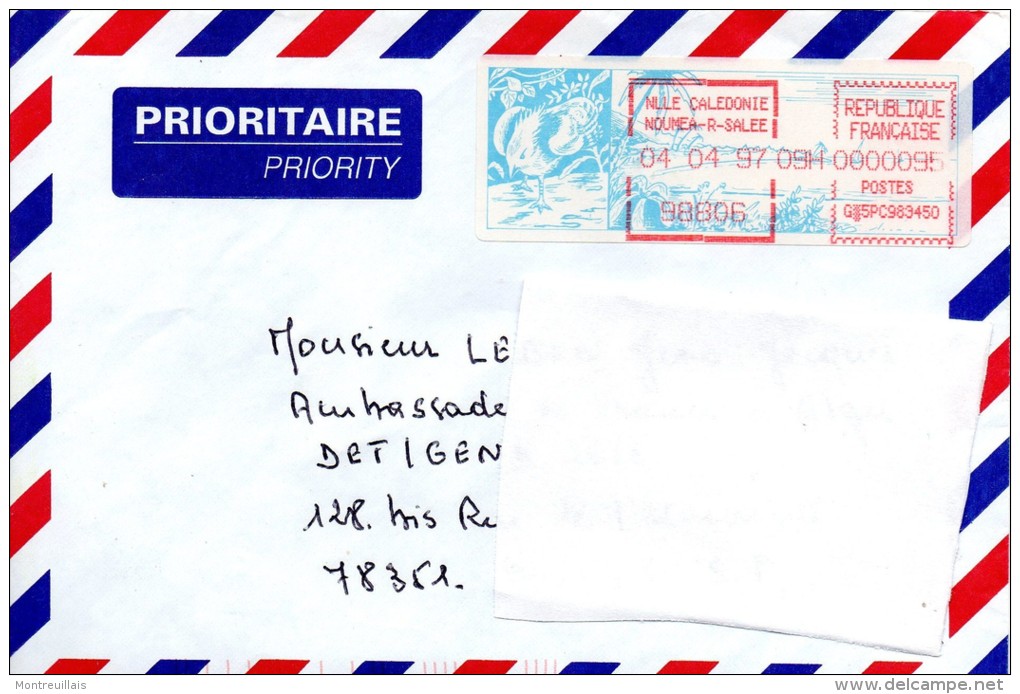 PRIORITAIRE
PRIORITY
NLLE CALEDONIE
NOUMEA-R-SALEE
04 04 97 09H 0000095
98806
REPUBLIQUE
FRANCAISE
POSTES
G 5PC983450
Monsieur LE
Ambassade
DET/GEN
128. bis Ru
78351.
Montreuillais
delcampe.net